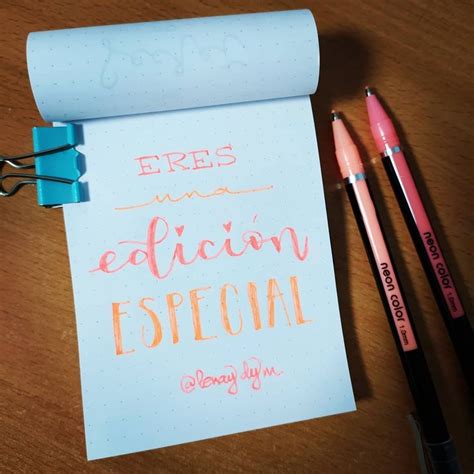 ERES
una
edición
ESPECIAL
neon color 1.0mm
neon color 1.0mm